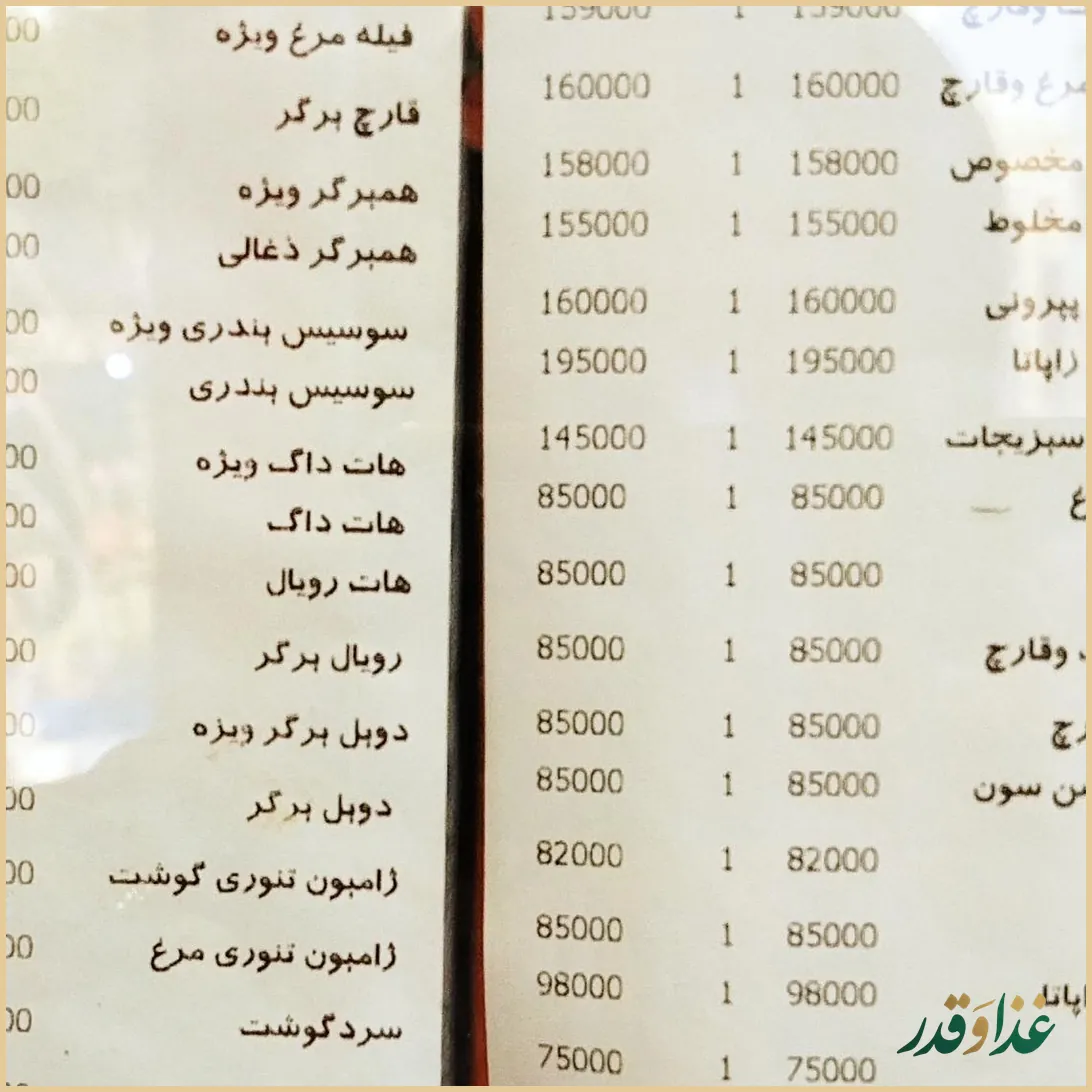 159000 1 159000 وقارچ
160000 1 160000 مرغ وقارچ
158000 1 158000 مخصوص
155000 1 155000 مخلوط
160000 1 160000 پپرونی
195000 1 195000 زاپاتا
145000 1 145000 سبزیجات
85000 1 85000
85000 1 85000
85000 1 85000 وقارچ
85000 1 85000
85000 1 85000 سون
82000 1 82000
85000 1 85000
98000 1 98000
75000 1 75000
فیله مرغ ویژه 00
قارچ برگر 00
همبرگر ویژه 00
همبرگر ذغالی 00
سوسیس بندری ویژه 00
سوسیس بندری 00
هات داگ ویژه 00
هات داگ 00
هات رویال 00
رویال برگر 00
دوبل برگر ویزه 00
دوبل برگر 00
ژامبون تنوری گوشت 00
ژامبون تنوری مرغ 00
سردگوشت 00
غذا و قدر